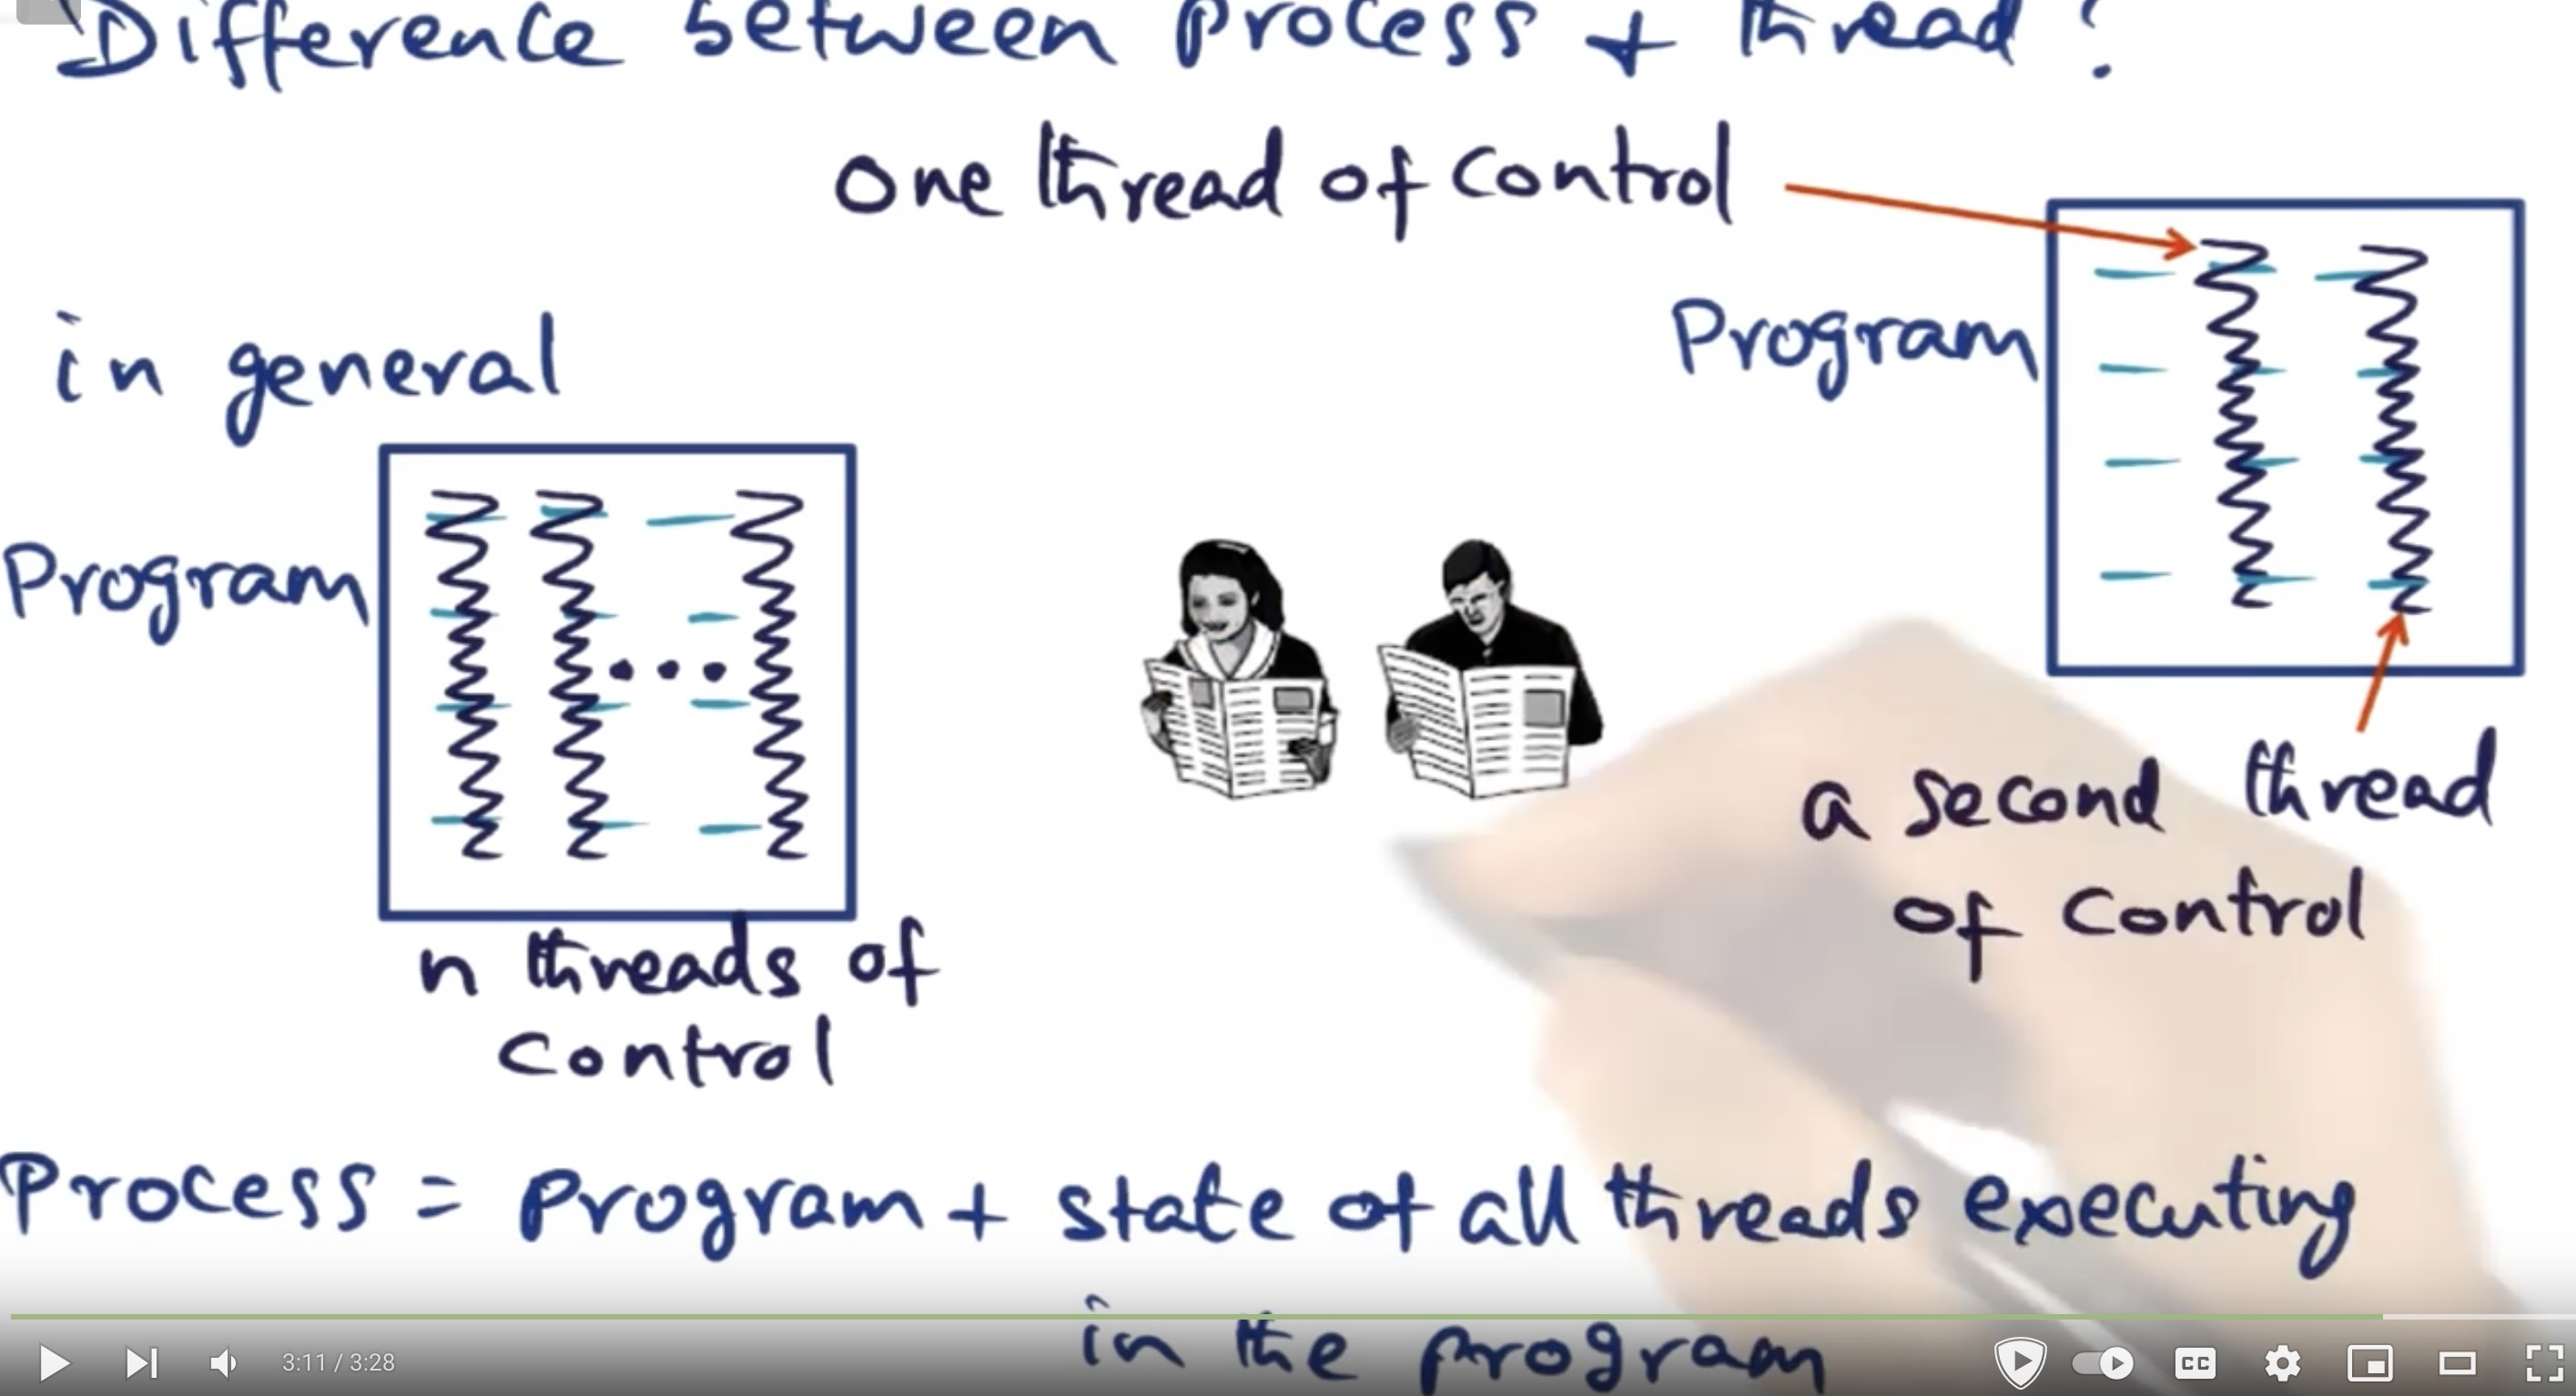 Difference between process + thread?
one thread of control
in general
Program
Program
a second thread
of control
n threads of
control
Process = program + state of all threads executing
in the program
3:11 / 3:28
CC